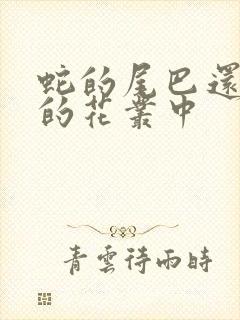 蛇的尾巴還
的花叢中
青雲待雨時